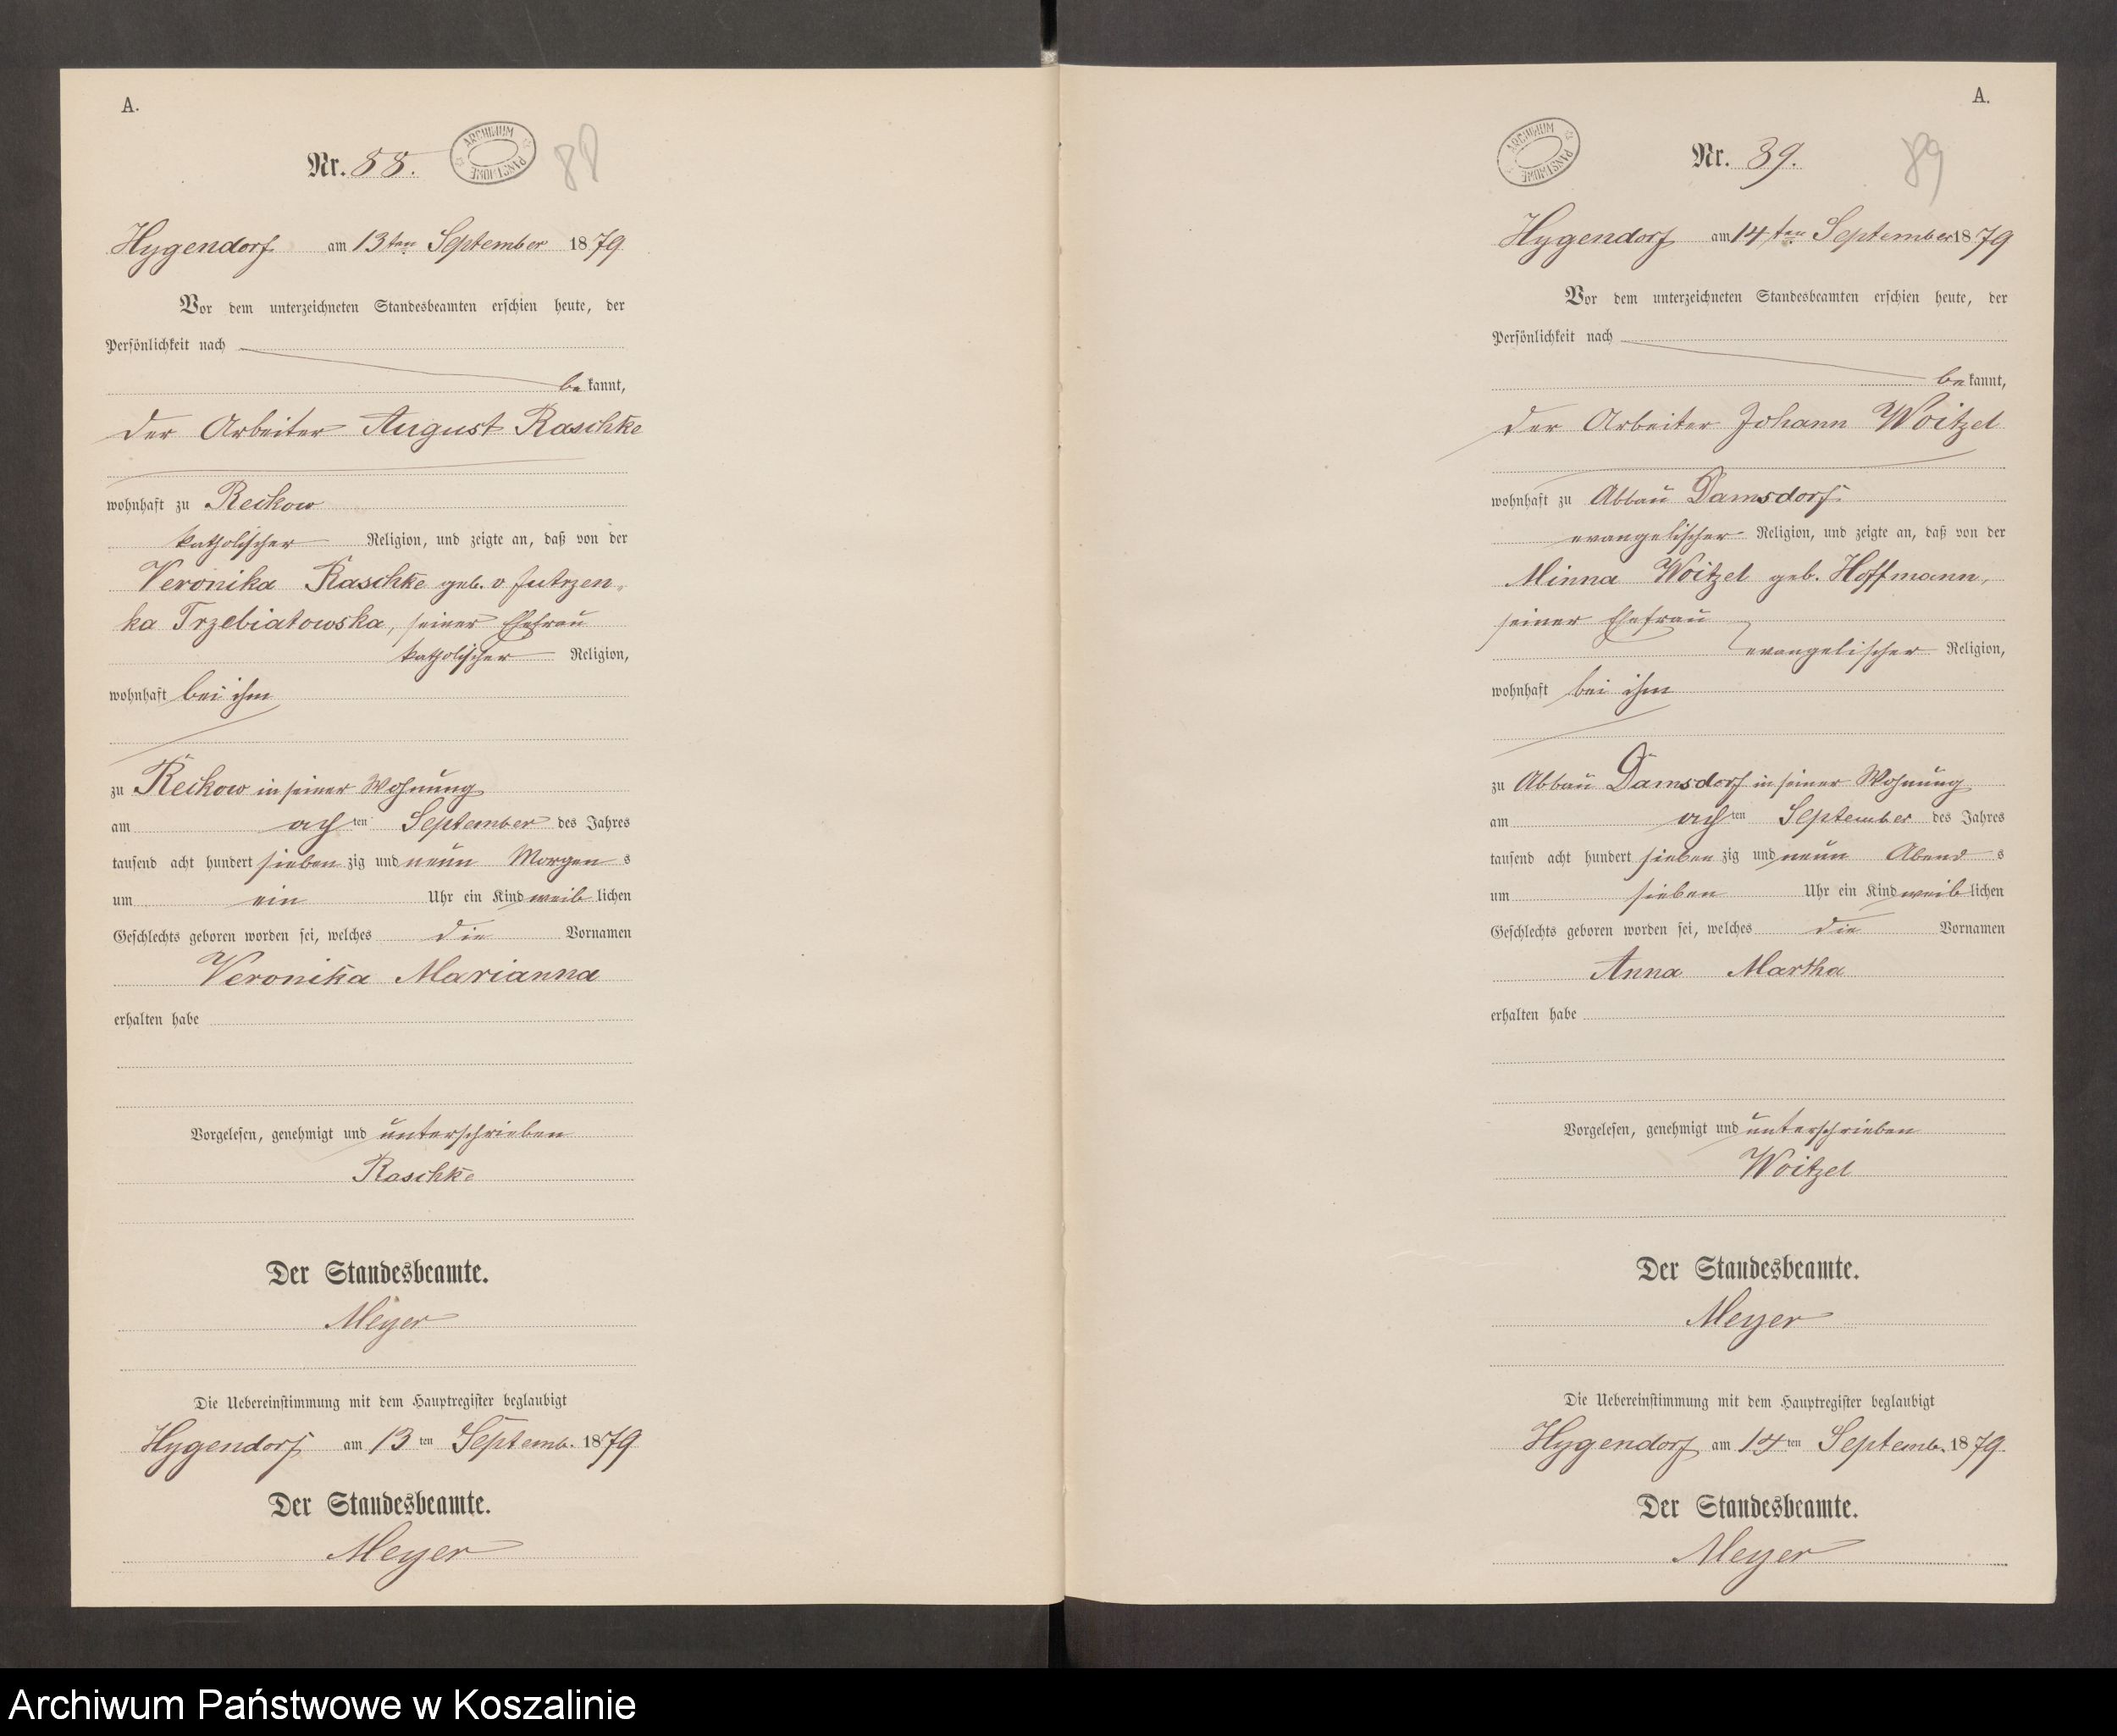 A.
Nr. 88.
ARCHIWUM PAŃSTWOWE
88
Hygendorf am 13ten September 1879
Vor dem unterzeichneten Standesbeamten erschien heute, der
Persönlichkeit nach
bekannt,
der Arbeiter August Raschke
wohnhaft zu Reckow
katholischer Religion, und zeigte an, daß von der
Veronika Raschke geb. v. Jutrzen-
ka Trzebiatowska, seiner Ehefrau
katholischer Religion,
wohnhaft bei ihm
zu Reckow in seiner Wohnung
am achten September des Jahres
tausend acht hundert siebenzig und neun Morgens
um ein Uhr ein Kind weiblichen
Geschlechts geboren worden sei, welches die Vornamen
Veronika Marianna
erhalten habe
Vorgelesen, genehmigt und unterschrieben
Raschke
Der Standesbeamte.
Meyer
Die Uebereinstimmung mit dem Hauptregister beglaubigt
Hygendorf am 13ten Septemb. 1879
Der Standesbeamte.
Meyer
A.
ARCHIWUM PAŃSTWOWE
Nr. 89.
89
Hygendorf am 14ten September 1879
Vor dem unterzeichneten Standesbeamten erschien heute, der
Persönlichkeit nach
bekannt,
der Arbeiter Johann Woitzel
wohnhaft zu Abbau Damsdorf
evangelischer Religion, und zeigte an, daß von der
Minna Woitzel geb. Hoffmann,
seiner Ehefrau
evangelischer Religion,
wohnhaft bei ihm
zu Abbau Damsdorf in seiner Wohnung
am achten September des Jahres
tausend acht hundert siebenzig und neun Abends
um sieben Uhr ein Kind weiblichen
Geschlechts geboren worden sei, welches die Vornamen
Anna Martha
erhalten habe
Vorgelesen, genehmigt und unterschrieben
Woitzel
Der Standesbeamte.
Meyer
Die Uebereinstimmung mit dem Hauptregister beglaubigt
Hygendorf am 14ten Septemb. 1879.
Der Standesbeamte.
Meyer
Archiwum Państwowe w Koszalinie